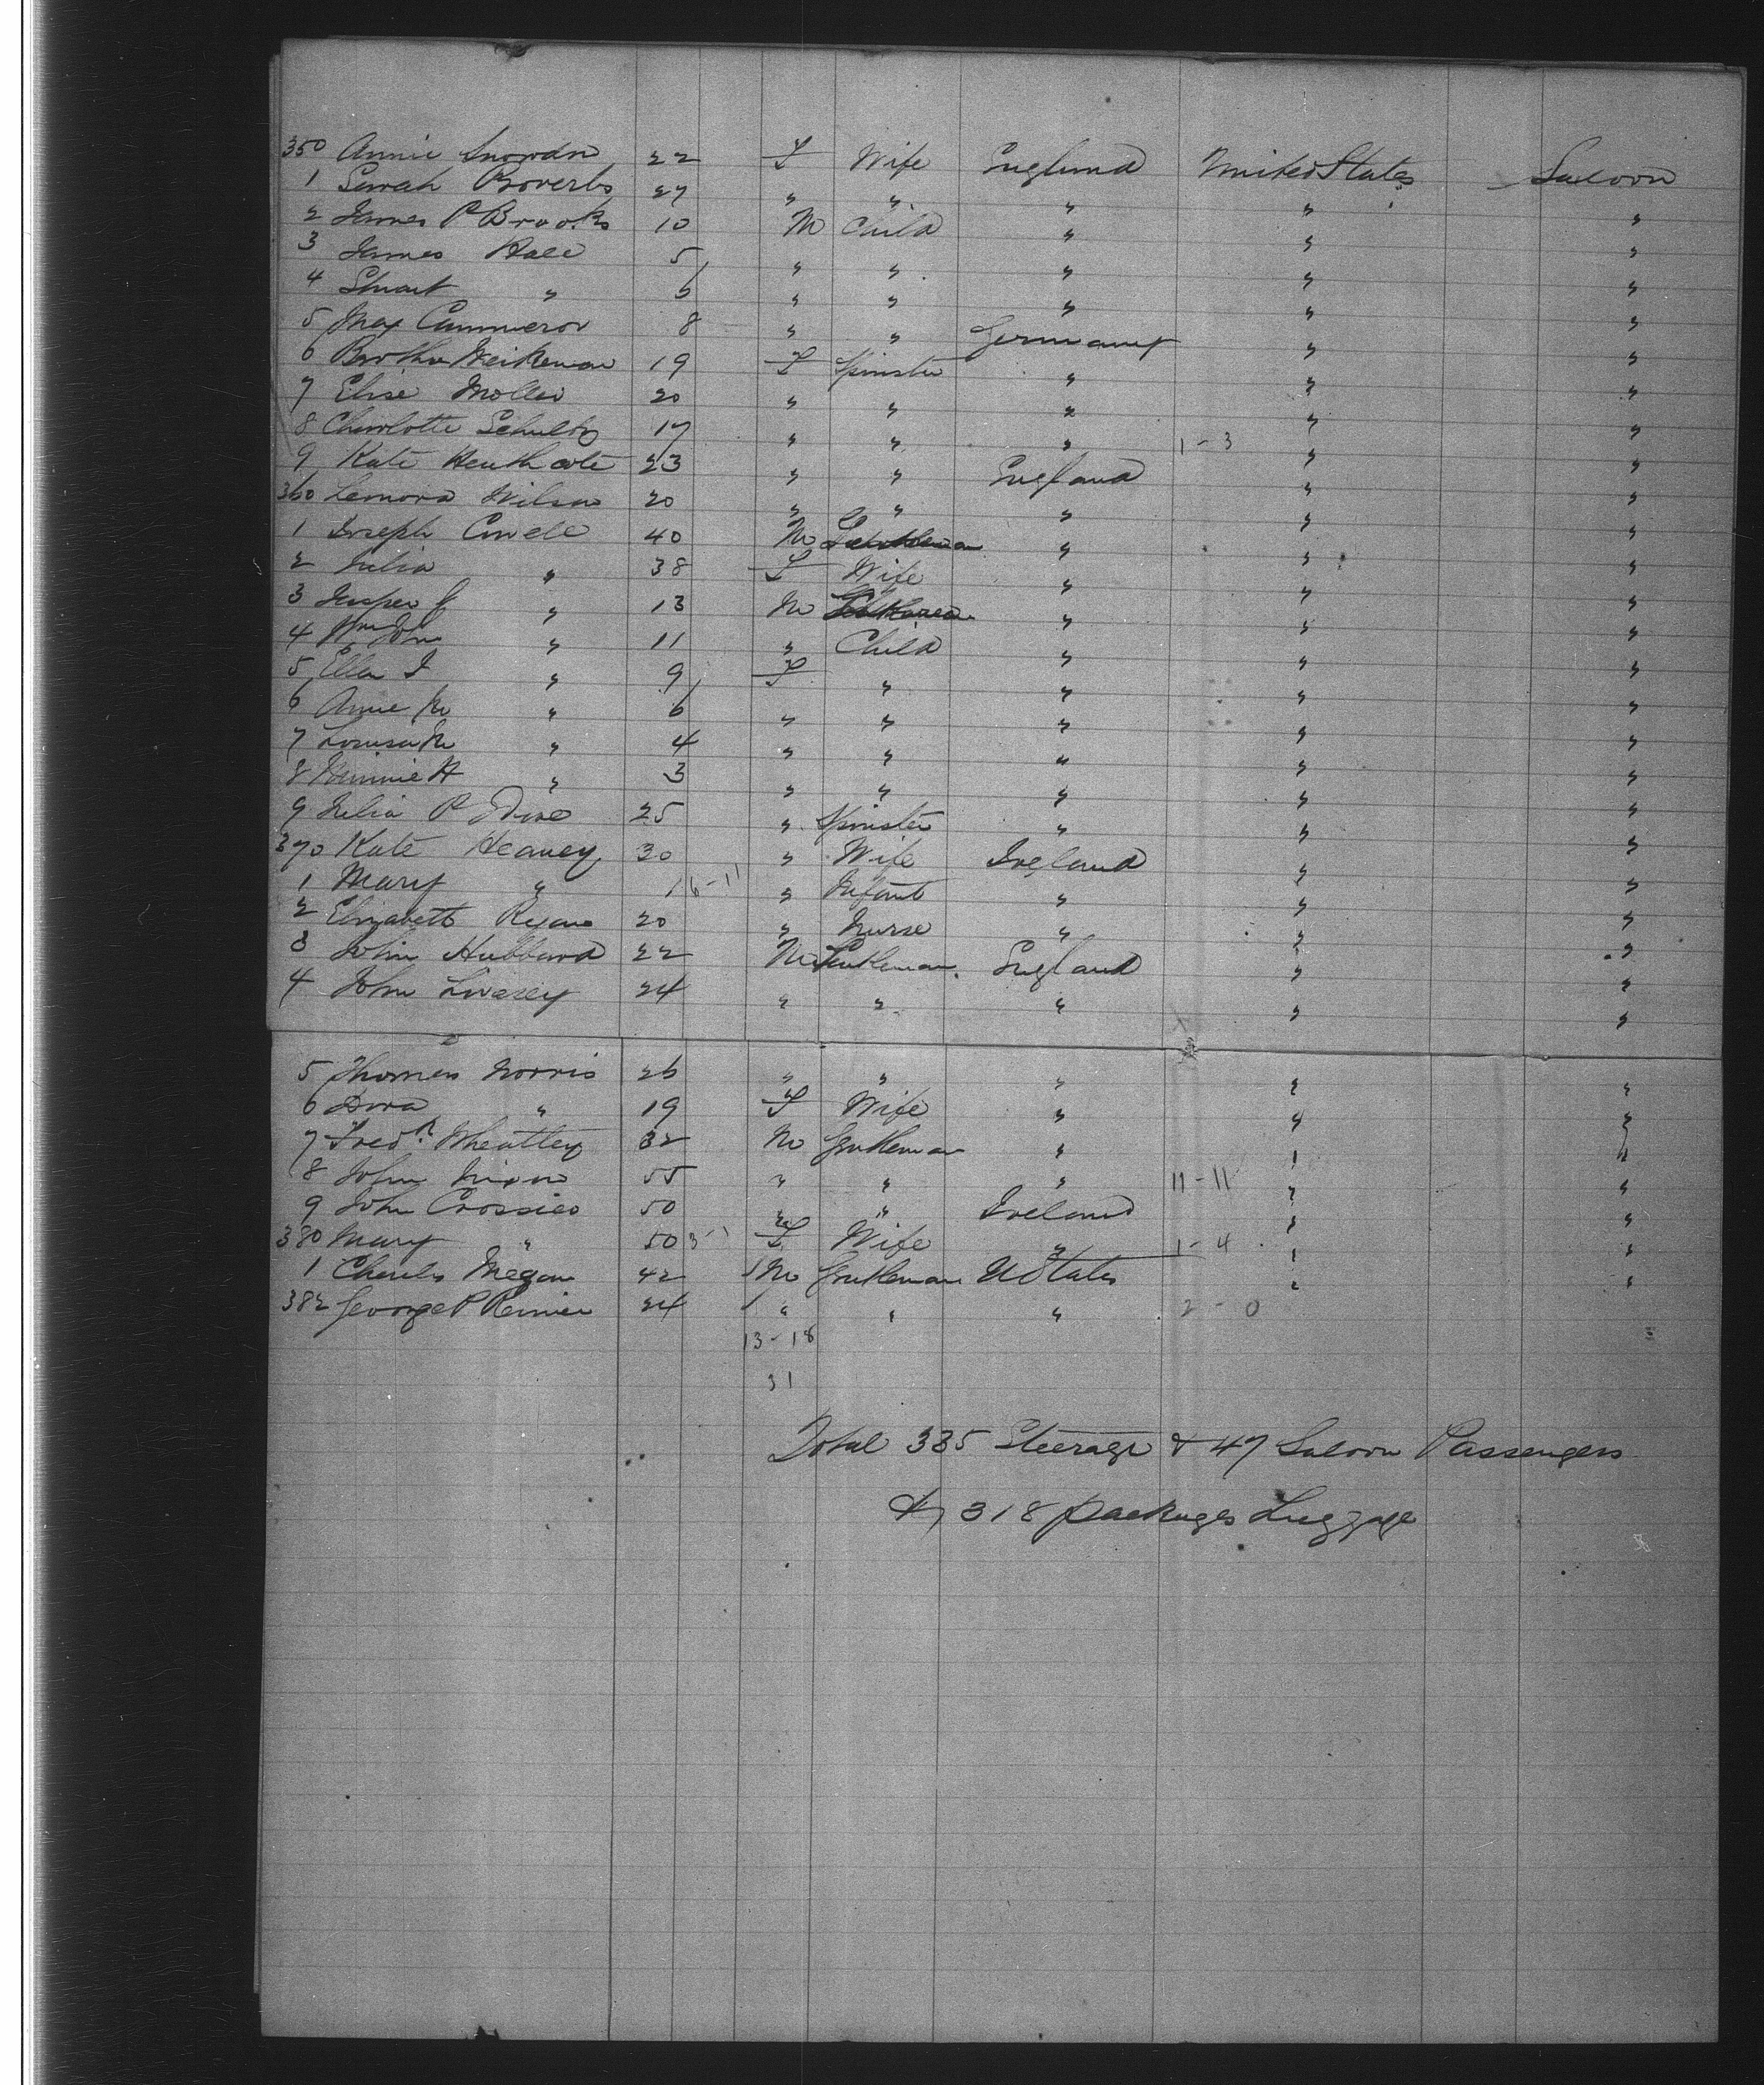 350 Annie Snowdon 22 F Wife England United States Saloon
1 Sarah Proverbs 27 " " " " "
2 James P Brooks 10 M Child " " "
3 James Hall 5 " " " " "
4 Stuart " 6 " " " " "
5 Max 8 " " Germany " "
6 Bertha Weikeman 19 F Spinster " " "
7 Elise Moller 20 " " " " "
8 Charlotte Schultz 17 " " " 1-3 " "
9 Kate Heathcote 23 " " England " "
360 Lenora Wilson 20 " " " " "
1 Joseph Cowell 40 M " " "
2 Julia " 38 F Wife " " "
3 Jasper J " 13 M " " "
4 Wm John " 11 " Child " " "
5 Ellen I " 9 F " " " "
6 Annie M " 6 " " " " "
7 Louisa M " 4 " " " " "
8 Minnie H " 3 " " " " "
9 Julia P 25 " Spinster " " "
370 Kate Heaney 30 " Wife Ireland " "
1 Mary " 1 6-11 " Infant " " "
2 Elizabeth Ryan 20 " Nurse " " "
3 John Hubbard 22 M Gentleman England " "
4 John Livesey 24 " " " " "
5 Thomas Norris 26 " " " " "
6 Dora " 19 F Wife " " "
7 Fredk Wheatley 32 M Gentleman " " "
8 John Nixon 55 " " " 11-11 " "
9 John Crossley 50 " " Ireland " "
380 Mary " 50 3-1 F Wife " 1-4 " "
1 Charles Megan 42 M Gentleman U States " "
382 George P Renier 24 " " " 2-0
13-18
31
Total 335 Steerage & 47 Saloon Passengers
& 318 packages Luggage